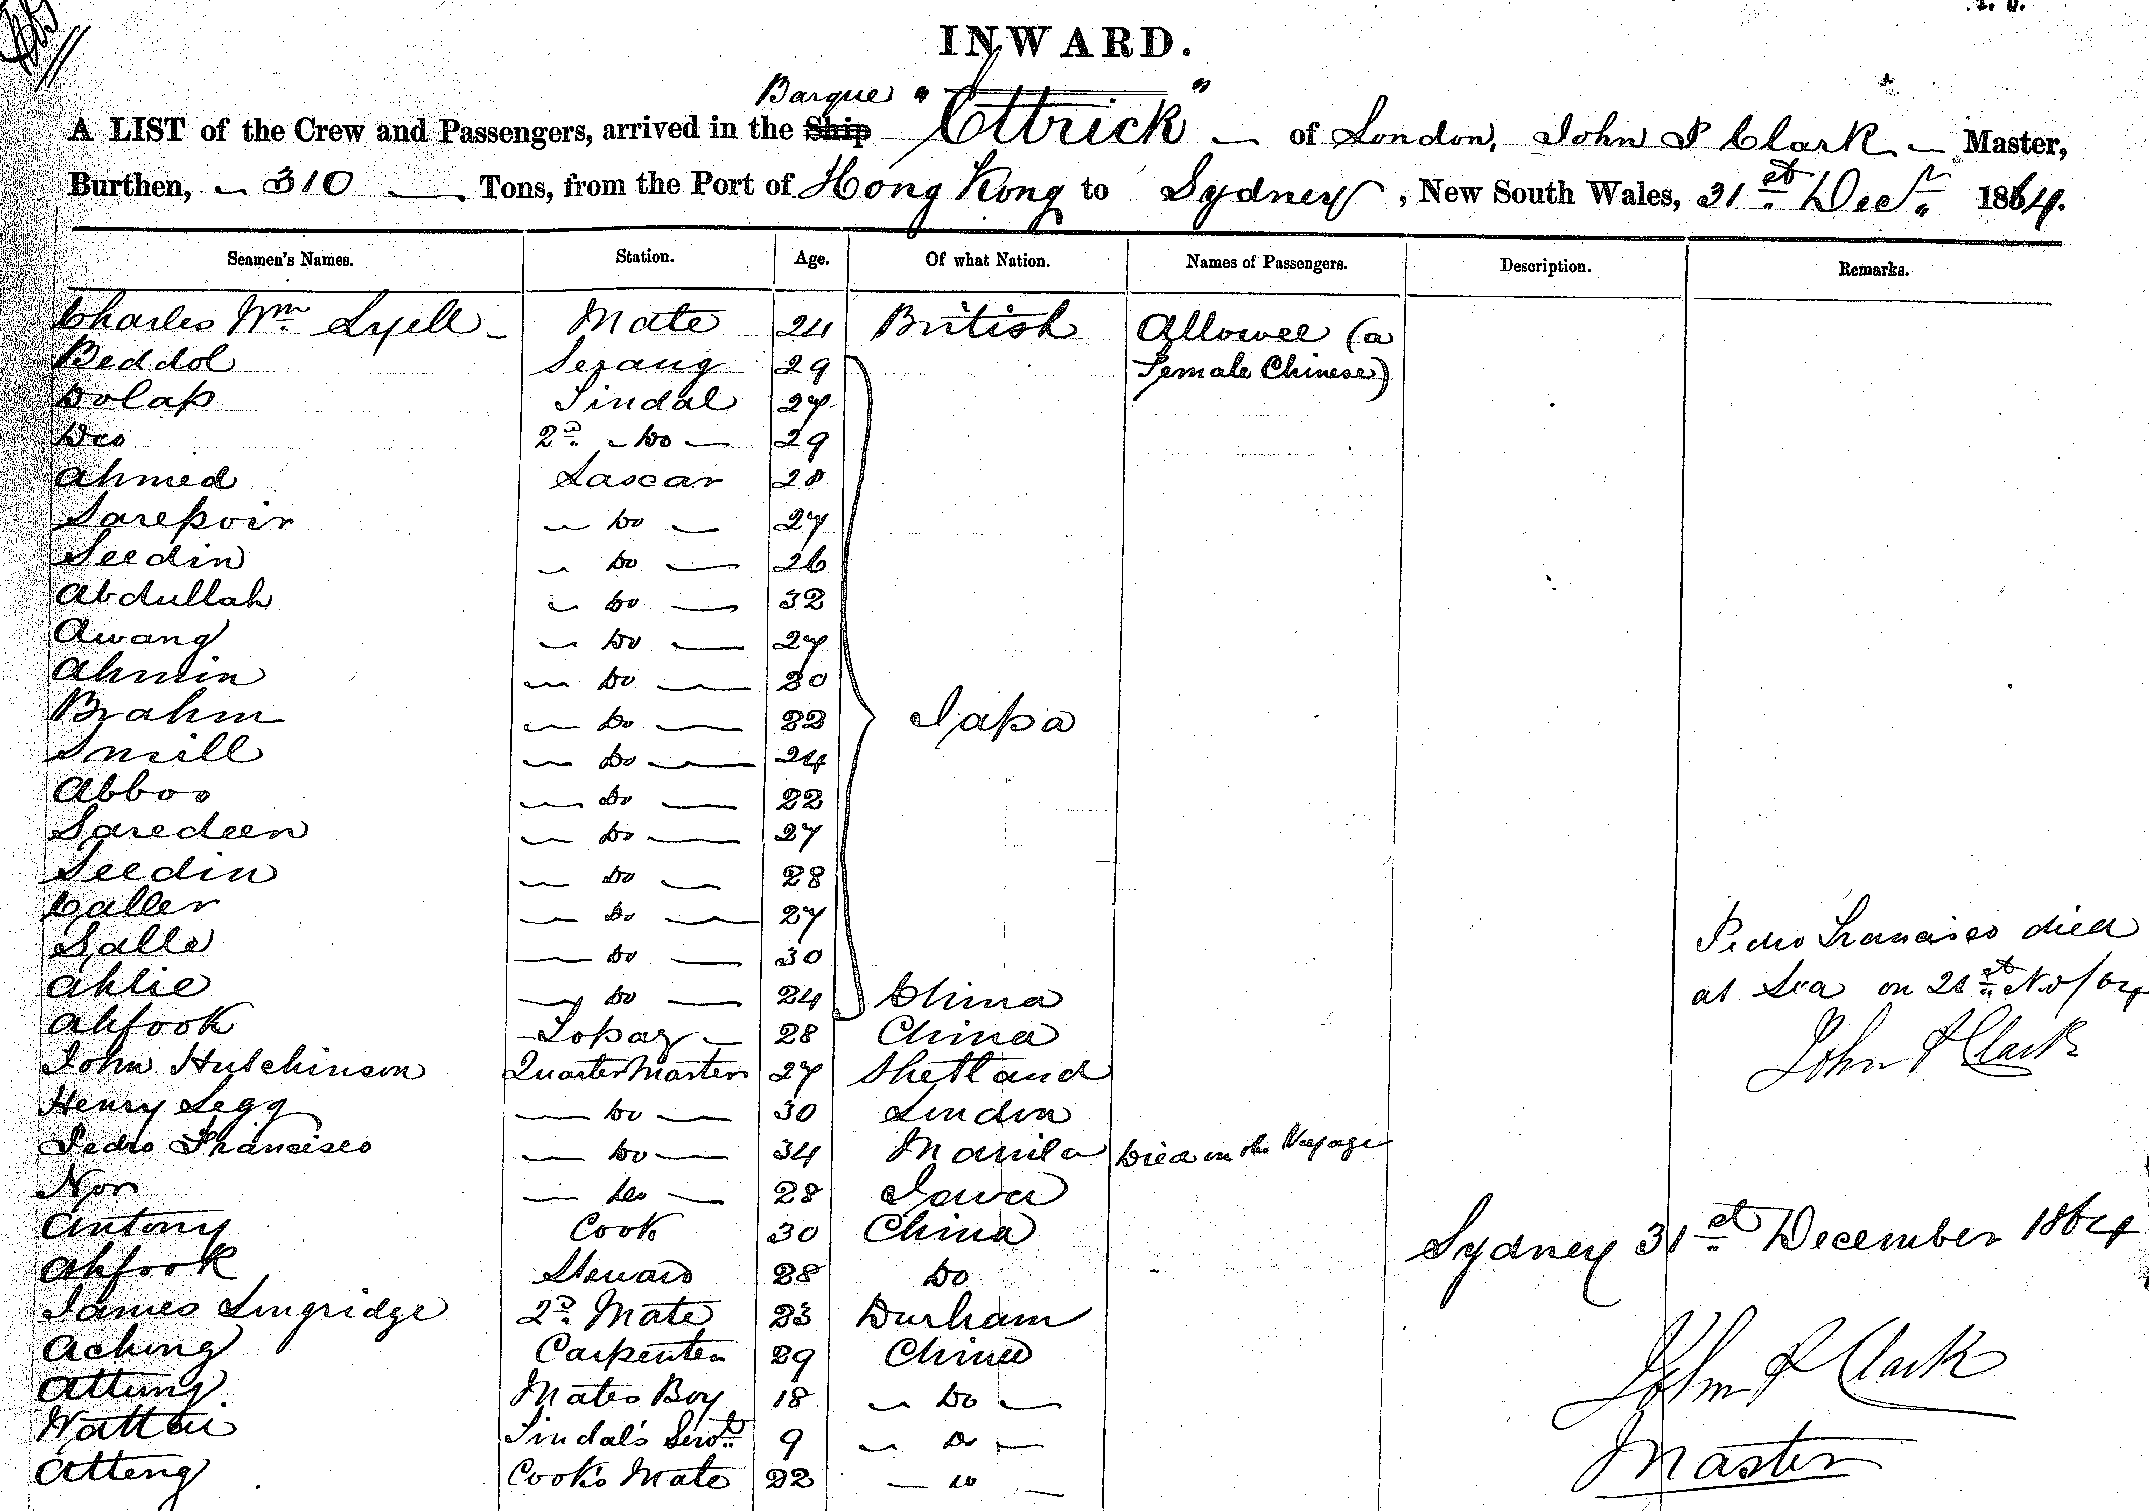 INWARD.
Barque "Ettrick"
A LIST of the Crew and Passengers, arrived in the Ship Ettrick of London, John P Clark Master,
Burthen, 310 Tons, from the Port of Hong Kong to Sydney, New South Wales, 31st Decr. 1864.
Seamen's Names. Station. Age. Of what Nation. Names of Passengers. Description. Remarks.
Charles Wm Lyell Mate 24 British Allowee (a
Beddol Serang 29 Female Chinese)
Dolap Tindal 27
Deo 2d Do 29
Ahmed Lascar 28
Sarepoir Do 27
Seedin Do 26
Abdullah Do 32
Awang Do 27
Ahmin Do 30
Brahm Do 22 Japa
Smill Do 24
Abbos Do 22
Saredeen Do 27
Seedin Do 28
Caller Do 27
Salle Do 30 Pedro Francisco died
Ahlie Do 24 China at Sea on 21st Nov/64
Ahfook Topaz 28 China John P Clark
John Hutchinson Quarter Master 27 Shetland
Henry Legg Do 30 London
Pedro Francisco Do 34 Manila Died on the Voyage
Nor Do 28 Jawa
Antony Cook 30 China Sydney 31st December 1864
Ahfook Steward 28 Do
James Lingridge 2d Mate 23 Durham John P Clark
Aching Carpenter 29 China
Attung Mates Boy 18 Do Master
Wattai Tindal's Servt 9 Do
Atteng Cook's Mate 22 Do